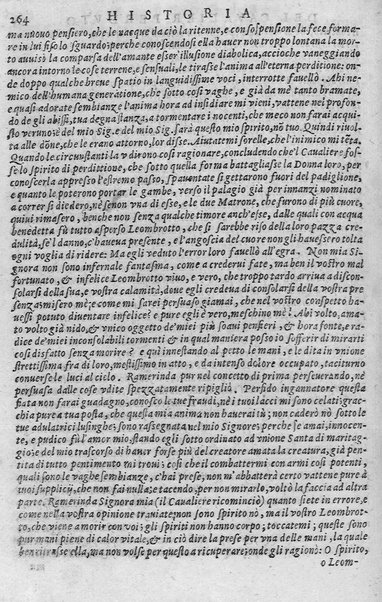 264 HISTORIA
ma nuouo pensiero, che le nacque da ciò la ritenne, e con sospensione la fece ferma-
re in lui fiso lo sguardo; perche conoscendosi ella hauer non troppo lontana la mor-
te auuisò la comparsa dell'amante esser illusione diabolica, accioche vaneggiando
ancora intorno le cose terrene, e sensuali, le tirasse l'anima all'eterna perditione: on-
de doppo qualche breue spatio in languidissime voci, interrotte fauellò. Ahi ne-
mico dell'humana generatione, che sotto cosi vaghe, e già da mè tanto bramate,
e quasi adorate sembianze l'anima hora ad insidiar mi vieni, vattene nel profon-
do de gli abissi, tua degna stanza, a tormentare i nocenti, che meco non farai acqui-
sto veruno: è del mio Sig. e del mio Sig. sarà questo mio spirito, nō tuo. Quindi riuol-
ta alle dōne, che le erano attorno, lor disse. Aiutatemi sorelle, che l'inimico mi tēta.
Quando le circustanti la vdirono così ragionare, concludendo che'l Caualiere fos-
se lo spirito di perditione, che sotto quella forma battagliasse la Donna loro, per
conoscerla appresso l'estremo passo, spauentate si gettarono fuori del padiglione,
e quanto le poterono portar le gambe, verso il palagio già per innanzi nominato
a correr si diedero, nè senon vna di esse, e le due Matrone, che furono di più cuore,
quiui rimasero, benche non senza qualche timore anch'esse, dalle quali con acqua
benedetta fù tutto asperso Leombrotto, che si sarebbe riso della loro pazza cre-
dulità, se'l danno, c'haueua presente, e l'angoscia del cuore non gli hauessero tolta
ogni voglia di ridere: Ma egli veduto l'error loro fauellò all'egra. Non mia Si-
gnora non sono infernale fantasima, come a crederui fate, ma ben il vostro mal
fortunato, & infelice Leombrotto viuo, e vero, che troppo tardo arriua a discon-
solarsi della sua, e vostra calamità, doue egli credeua di consolarsi della vostra pre
senza; misero mè; e come mi sarei persuaso giamai, che nel vostro conspetto ha-
uessi potuto diuentare infelice? e pure egli è vero, meschino mè! Ahi volto, ama-
to volto già nido, & vnico oggetto de' miei più soaui pensieri, & hora fonte, e ra-
dice de' miei inconsolabili tormenti & in qual maniera posso io sofferir di mirarti
così disfatto senza morire? e quì innestando al petto le mani, e le dita in vnione
strettissima frà di loro, mestissimo in atto, e da intenso dolore occupato, taciturno
conuerse le luci al cielo. Ramerinda pur nel concetto di prima perseuerando, ne
persuasa dalle cose vdite sprezzatamente ripigliò. Persido ingannatore questa
fiata non farai guadagno, conosco le tue fraudi, nè i tuoi lacci mi sono celati: grac-
chia pure a tua posta, che questa mia anima non hauerai tù; non caderò nò sotto le
tue adulatrici lusinghe, sono rassegnata nel mio Signore; perche se amai, innocen-
te, e pudico fù l'amor mio, stando egli sotto ordinato ad vnione Santa di maritag-
gio; del mio trascorso di hauer forse più del creatore amata la creatura, già pen-
tita di tutto pentimento mi troui; così che il combattermi con armi così potenti,
quali sono le vaghe sembianze, c'hai prese, non m'abbatterà certo vattene pure à
tuoi suppliciј, che non fai nulla: e tacendo, per non mirarlo, voltò la faccia ad altra
parte. Ramerinda Signora mia (il Caualiere ricominciò) quanto siete in errore, e
come nella vostra opinione trauiate; non sono spirito nò, ma il vostro Leombrot-
to, che viene a morir con voi; gli spiriti non hanno corpo, toccatemi; queste sono
pur mani piene di calor vitale, & in ciò dire la prese per vna delle mani, la quale
benche tirasse ella, ma non volse per questo a ricuperare; onde gli ragionò: O spirito,
o Leom-